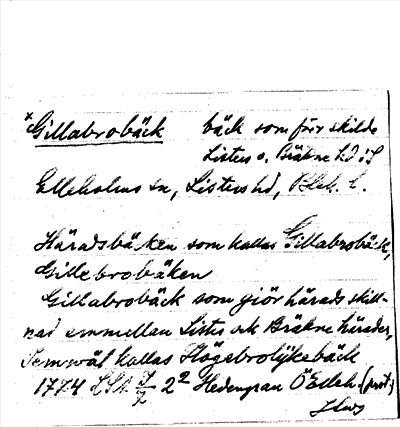 *Gillabrobäck bäck som förr skilde
Listers o. Bräkne hd i S
Elleholms sn, Listers hd, Blek. l.
Häradsbäcken som kallas Gillabrobäck,
Gillebrobäken
Gillabrobäck som giör härads skill-
nad emmellan Listers och Bräkne härader,
Semwäl kallas Högebrolykebäck
1774 LSA 2² Hedengran Ö Elleh. (prot.)